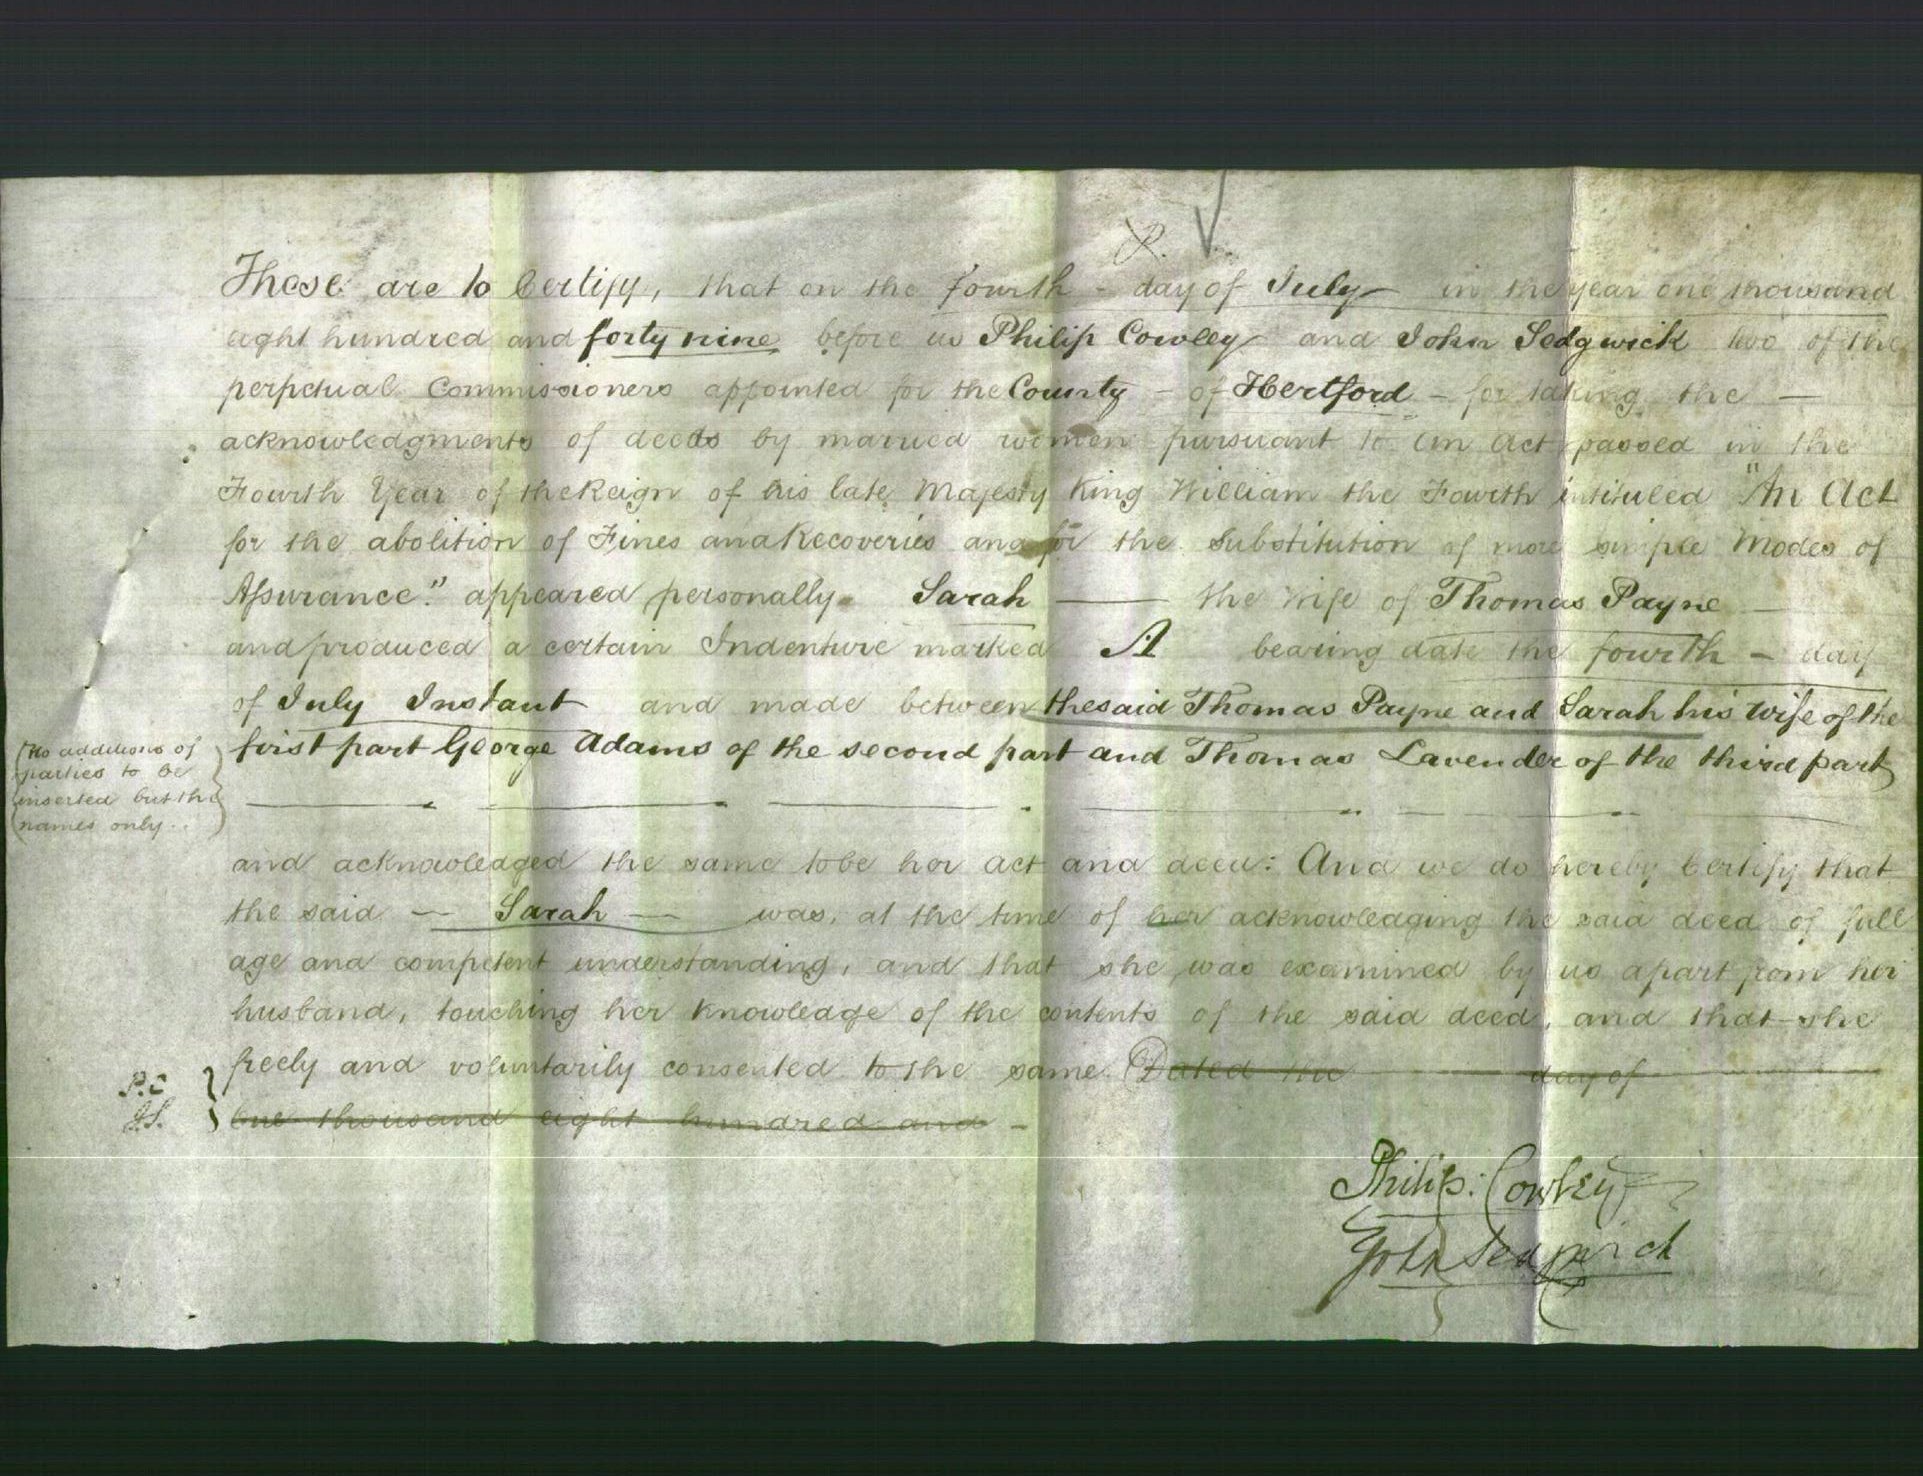 P.
These are to Certify, that on the fourth - day of July in the year one thousand
eight hundred and forty nine before us Philip Cowley and John Sedgwick two of the
perpetual Commissioners appointed for the County - of Hertford - for taking the -
acknowledgments of deeds by married women pursuant to an Act passed in the
Fourth Year of the Reign of his late Majesty King William the Fourth intituled "An Act
for the abolition of Fines and Recoveries and for the Substitution of more simple Modes of
Assurance." appeared personally Sarah — the Wife of Thomas Payne —
and produced a certain Indenture marked A bearing date the fourth - day
of July Instant and made between the said Thomas Payne and Sarah his wife of the
first part George Adams of the second part and Thomas Lavender of the third part
(No additions of
parties to be
inserted but the
names only..
and acknowledged the same to be her act and deed: And we do hereby Certify that
the said — Sarah — was, at the time of her acknowledging the said deed of full
age and competent understanding, and that she was examined by us apart from her
husband, touching her knowledge of the contents of the said deed, and that she
freely and voluntarily consented to the same. Dated the day of
P.C
J.S.
One thousand eight hundred and -
Philip: Cowley
John Sedgwick